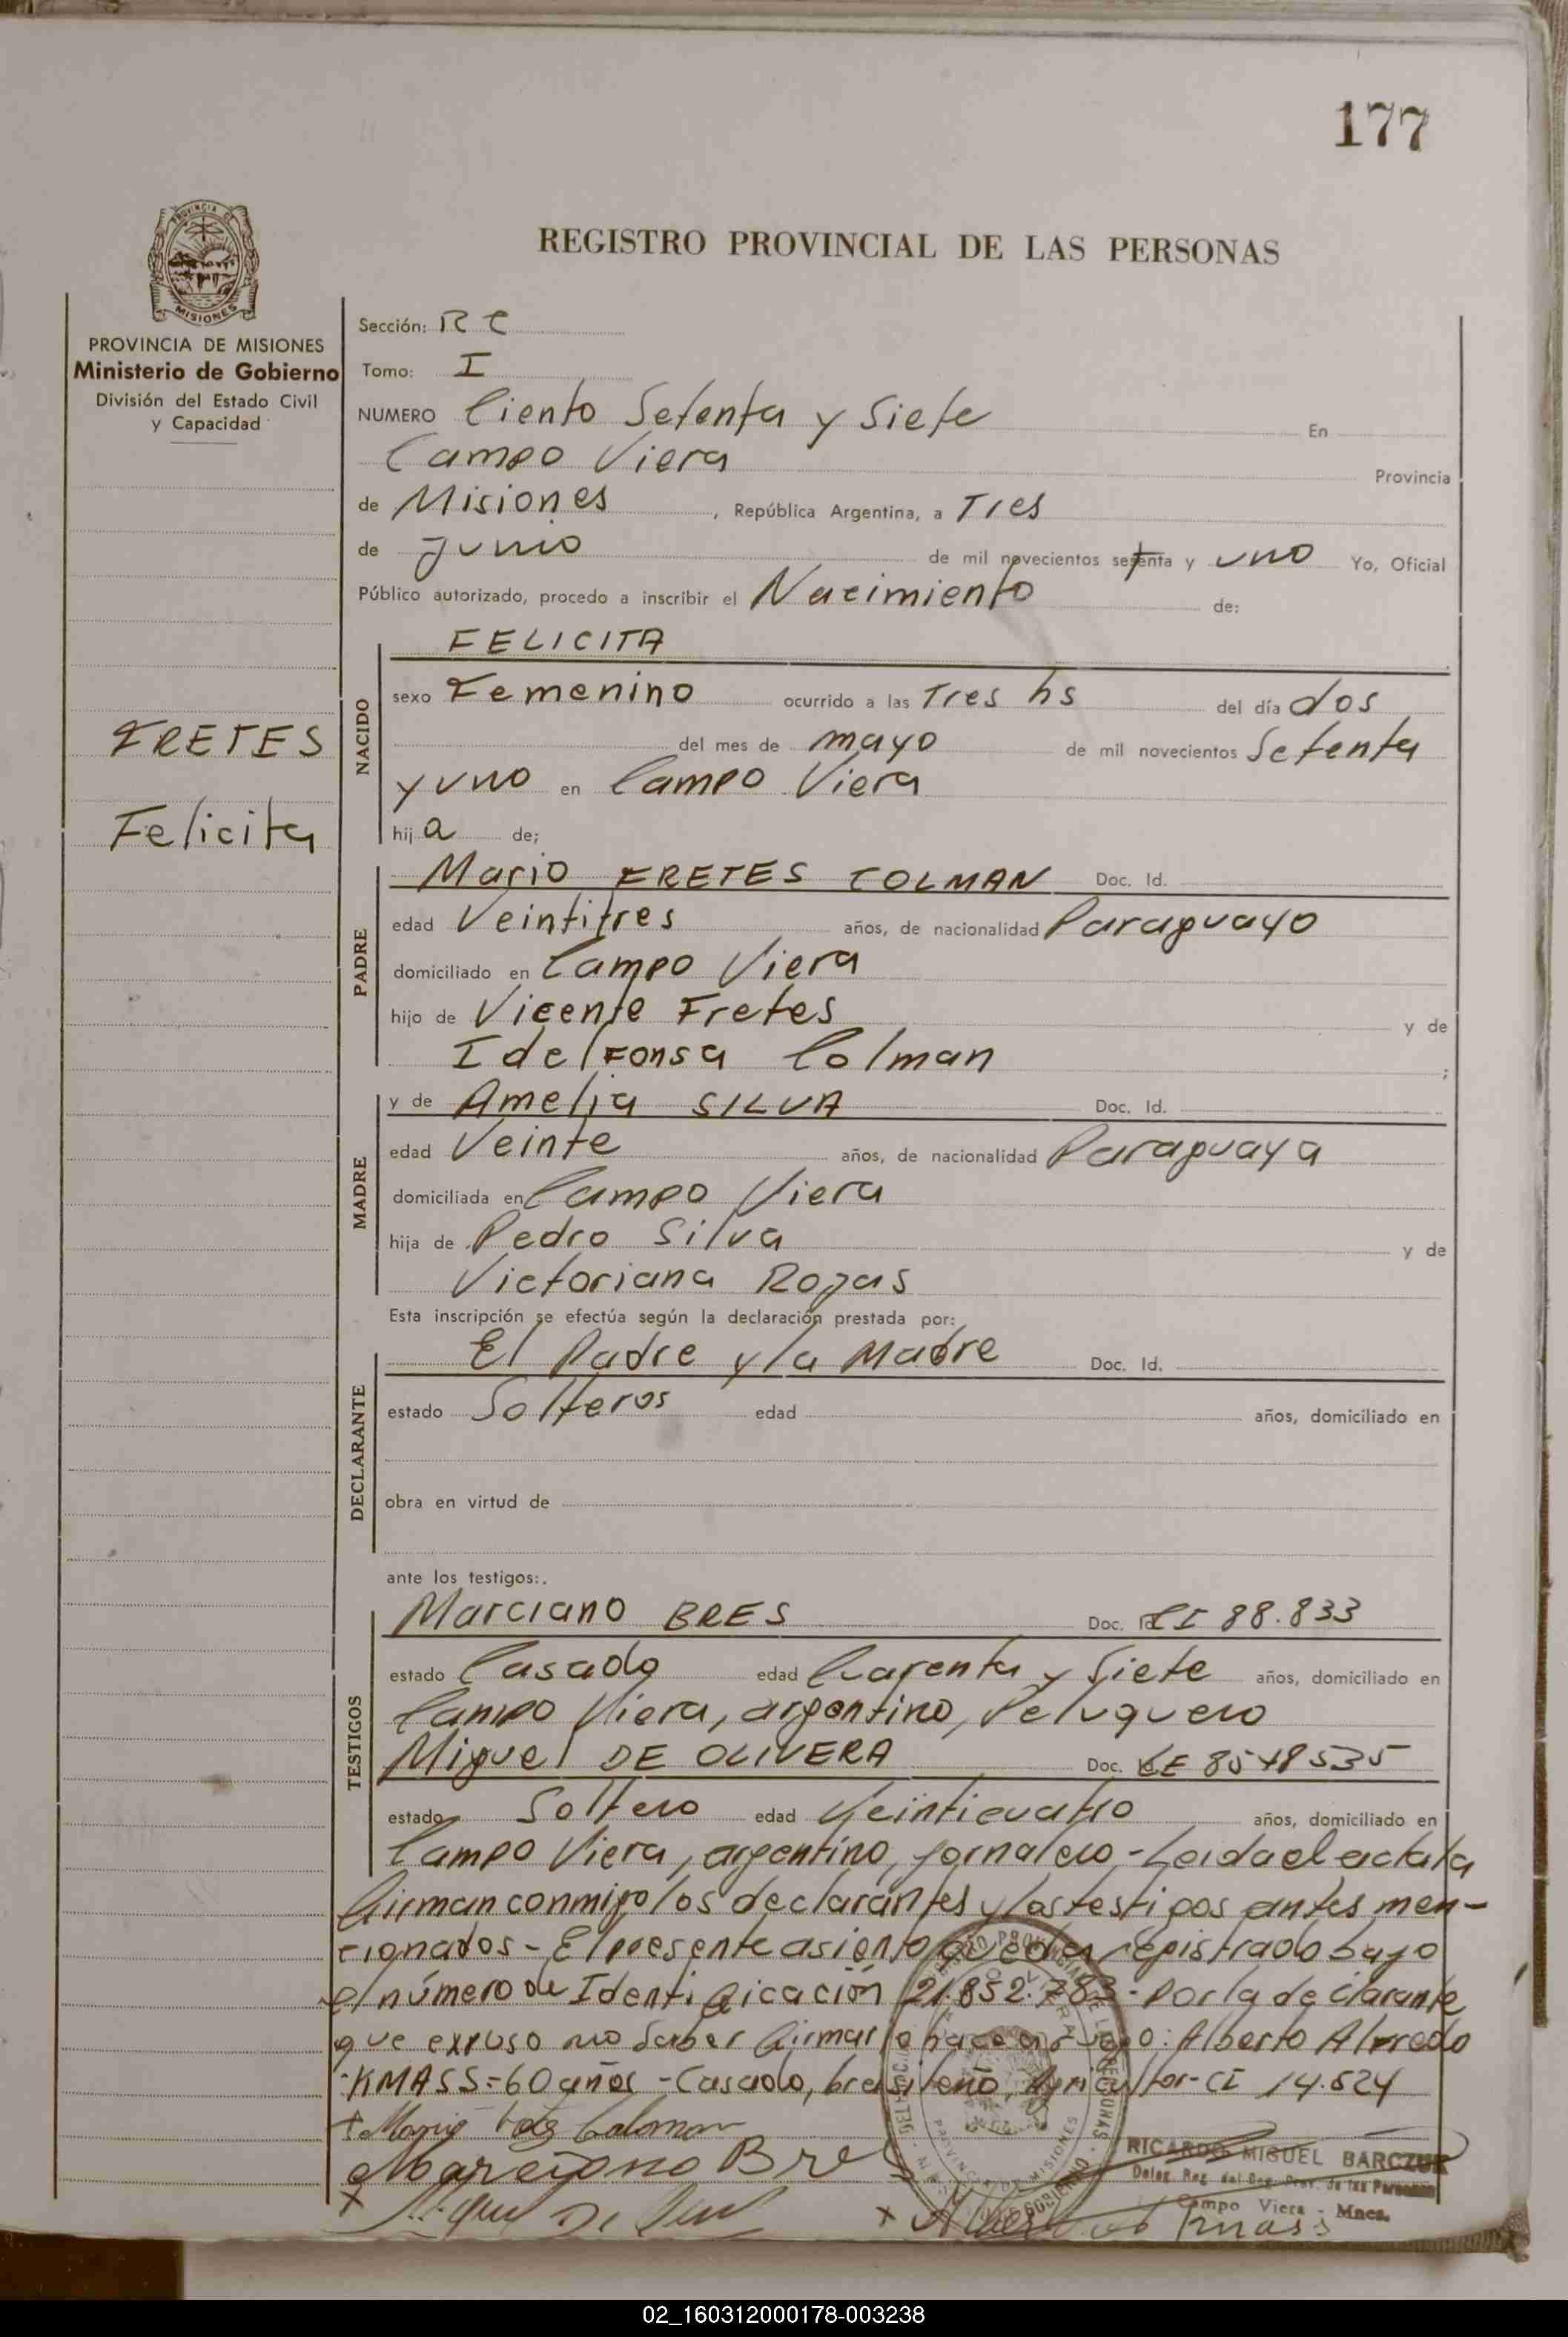 177
REGISTRO PROVINCIAL DE LAS PERSONAS
PROVINCIA DE
MISIONES
PROVINCIA DE MISIONES
Ministerio de Gobierno
División del Estado Civil
y Capacidad
FRETES
Felicita
Sección: RC
Tomo: I
NUMERO Ciento Setenta y Siete En
Campo Viera Provincia
de Misiones, República Argentina, a Tres
de Junio de mil novecientos setenta y uno Yo, Oficial
Público autorizado, procedo a inscribir el Nacimiento de:
NACIDO
FELICITA
sexo Femenino ocurrido a las Tres hs del día dos
del mes de mayo de mil novecientos Setenta
y uno en Campo Viera
hija de;
PADRE
Mario FRETES COLMAN Doc. Id.
edad Veintitres años, de nacionalidad Paraguayo
domiciliado en Campo Viera
hijo de Vicente Fretes y de
Idelfonsa Colman ;
MADRE
y de Amelia SILVA Doc. Id.
edad Veinte años, de nacionalidad Paraguaya
domiciliada en Campo Viera
hija de Pedro Silva y de
Victoriana Rojas
Esta inscripción se efectúa según la declaración prestada por:
DECLARANTE
El Padre y la Madre Doc. Id.
estado Solteros edad años, domiciliado en
obra en virtud de
ante los testigos:
TESTIGOS
Marciano BRES Doc. Id CI 88.833
estado Casado edad Cuarenta y Siete años, domiciliado en
Campo Viera, argentino, Peluquero
Miguel DE OLIVERA Doc. LE 8548535
estado Soltero edad Veinticuatro años, domiciliado en
Campo Viera, argentino, jornalero - Leida el acta la
firman conmigo los declarantes y los testigos antes men-
cionados - El presente asiento queda registrado bajo
el número de Identificación 21.852.783 - Por la declarante
que expuso no saber firmar lo hace a ruego: Alberto Alfredo
KMASS - 60 años - Casado, brasileño, Agricultor - CI 14.524
Marciano Bres
RICARDO MIGUEL BARCZUK
Deleg. Reg. del Reg. Prov. de las Personas
Campo Viera - Mnes.
02_160312000178-003238